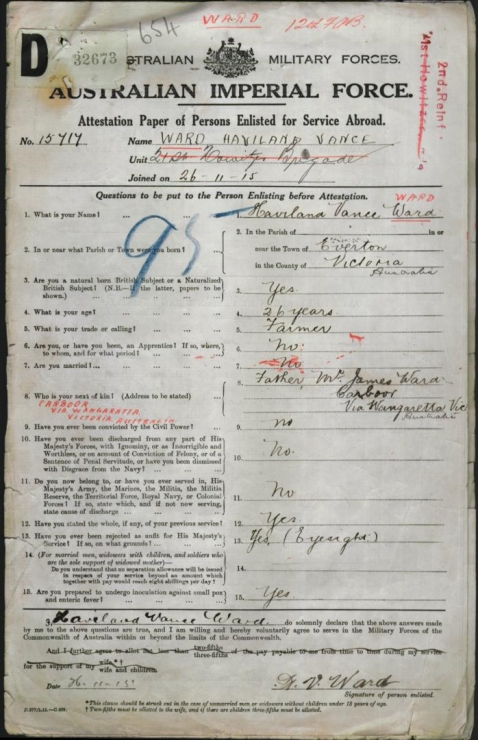 654
WARD
12th FAB.
D
32673
AUSTRALIAN MILITARY FORCES.
AUSTRALIAN IMPERIAL FORCE.
2nd. Reinf.
21st Howitzer
Attestation Paper of Persons Enlisted for Service Abroad.
No. 15717 Name WARD HAVILAND VANCE
Unit 21st Howitzer Brigade
Joined on 26-11-15
Questions to be put to the Person Enlisting before Attestation.
WARD
1. What is your Name? ... ... ... 1. Haviland Vance Ward
2. In the Parish of in or
2. In or near what Parish or Town were you born? ... near the Town of Everton
in the County of Victoria
Australia
95
3. Are you a natural born British Subject or a Naturalized
British Subject? (N.B.—If the latter, papers to be
shown.) ... 3. Yes
4. What is your age? ... 4. 26 years
5. What is your trade or calling? ... 5. Farmer
6. Are you, or have you been, an Apprentice? If so, where,
to whom, and for what period? ... 6. No
7. Are you married? ... 7. No
8. Who is your next of kin? (Address to be stated) 8. Father Mr. James Ward
Carboor
Via Wangaratta Vic
Australia
CARBOOR
VIA WANGARATTA
VICTORIA AUSTRALIA
9. Have you ever been convicted by the Civil Power? ... 9. no
10. Have you ever been discharged from any part of His
Majesty's Forces, with Ignominy, or as Incorrigible and
Worthless, or on account of Conviction of Felony, or of a
Sentence of Penal Servitude, or have you been dismissed
with Disgrace from the Navy? ... 10. No
11. Do you now belong to, or have you ever served in, His
Majesty's Army, the Marines, the Militia, the Militia
Reserve, the Territorial Force, Royal Navy, or Colonial
Forces? If so, state which, and if not now serving,
state cause of discharge ... 11. No
12. Have you stated the whole, if any, of your previous service? 12. Yes
13. Have you ever been rejected as unfit for His Majesty's
Service? If so, on what grounds? ... 13. Yes (Eyesight)
14. (For married men, widowers with children, and soldiers who
are the sole support of widowed mother)—
Do you understand that no separation allowance will be issued
in respect of your service beyond an amount which
together with pay would reach eight shillings per day? 14.
15. Are you prepared to undergo inoculation against small pox
and enteric fever? ... 15. Yes
I, Haviland Vance Ward do solemnly declare that the above answers made
by me to the above questions are true, and I am willing and hereby voluntarily agree to serve in the Military Forces of the
Commonwealth of Australia within or beyond the limits of the Commonwealth.
And I further agree to allot not less than two-fifths three-fifths of the pay payable to me from time to time during my service
for the support of my wife*† wife and children.
Date 26-11-15 H. V. Ward
Signature of person enlisted.
*This clause should be struck out in the case of unmarried men or widowers without children under 18 years of age.
†Two-fifths must be allotted to the wife, and if there are children three-fifths must be allotted.